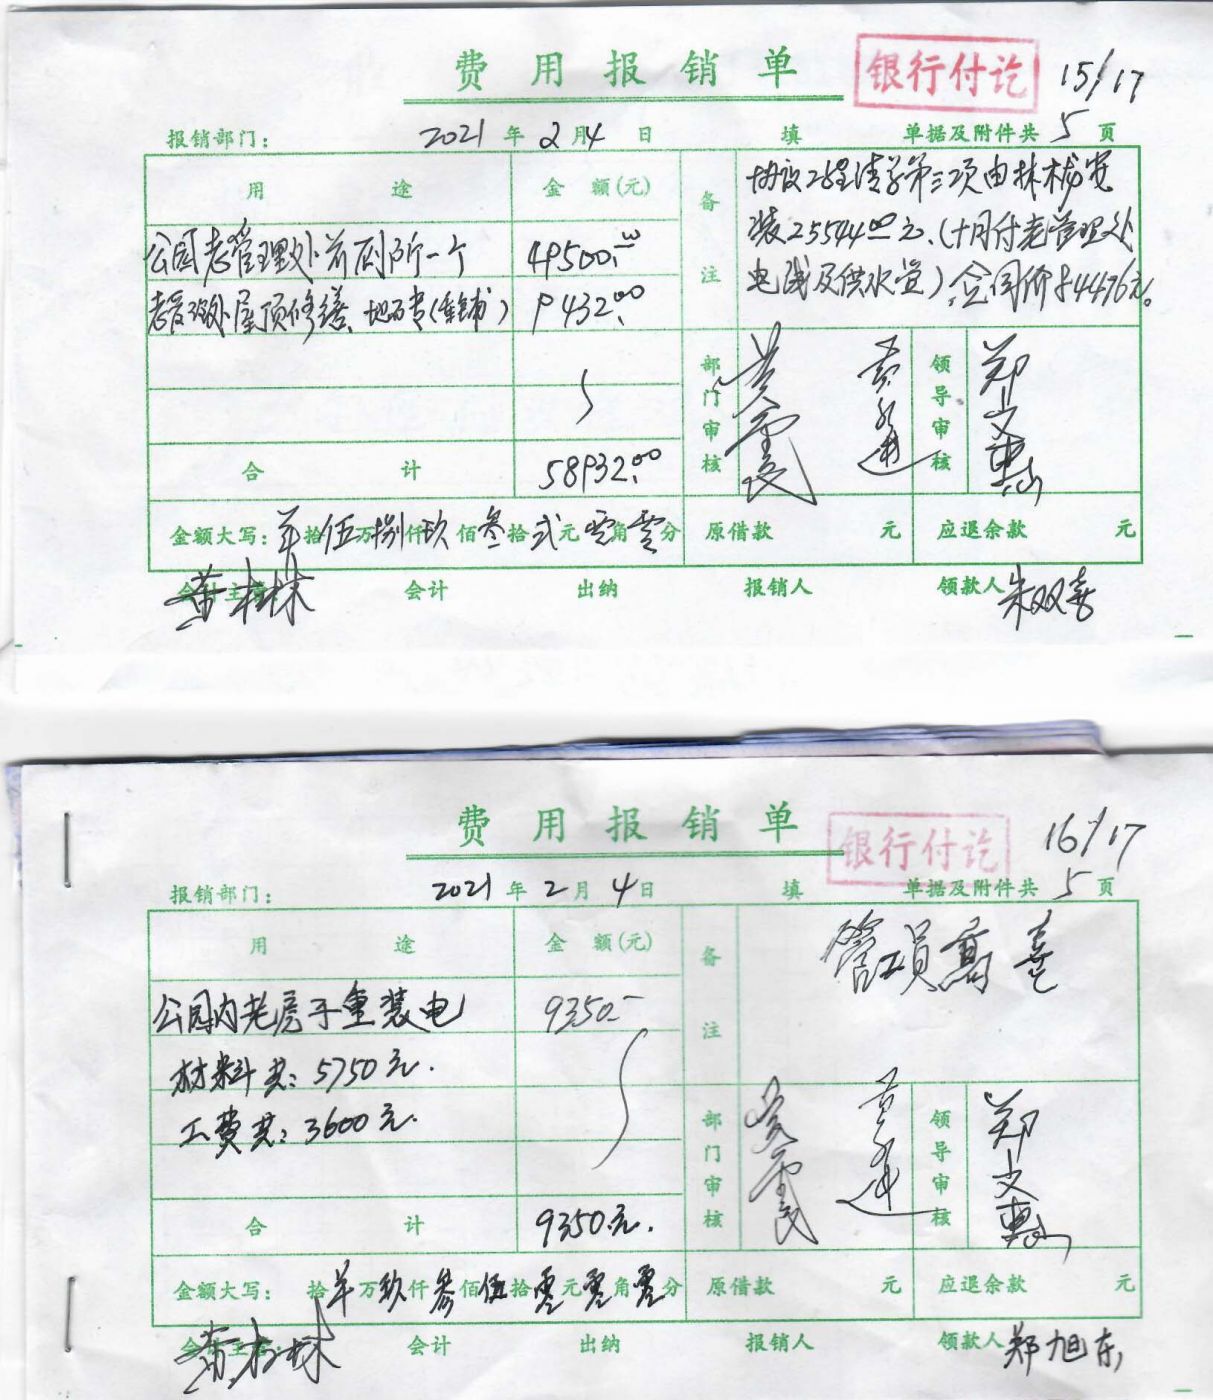 费用报销单
银行付讫
15/17
报销部门: 2021年2月4日 填 单据及附件共5页
用途 金额(元) 备注
公园老管理处前厕所一个 49500.00
老管理处屋顶修缮、地砖(重铺) 9432.00
协议工程清单第三项由林械安
装25544.00元、(十月付老管理处
电线及供水管)合同价84476元。
部门审核 领导审核 郑文惠
合计 58932.00
金额大写: 拾伍万捌仟玖佰叁拾贰元零角零分 原借款 元 应退余款 元
会计主管: 会计 出纳 报销人 领款人 朱双喜
费用报销单
银行付讫
16/17
报销部门: 2021年2月4日 填 单据及附件共5页
用途 金额(元) 备注
公园内老房子重装电 9350-
材料共: 5750元.
工费共: 3600元.
部门审核 领导审核 郑文惠
合计 9350元.
金额大写: 拾万玖仟叁佰伍拾零元零角零分 原借款 元 应退余款 元
会计主管: 会计 出纳 报销人 领款人 郑旭东